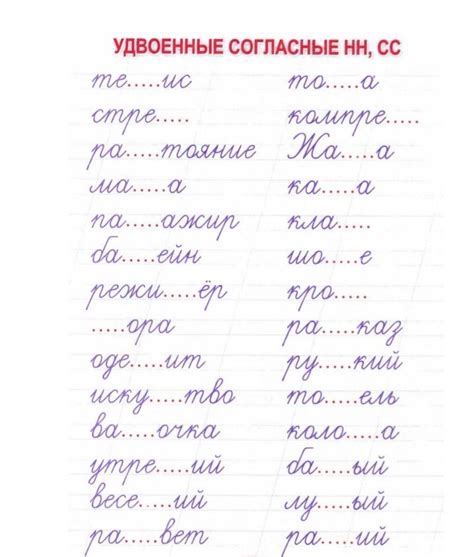 УДВОЕННЫЕ СОГЛАСНЫЕ НН, СС
те.....ис то.....а
стре..... компре.....
ра.....тояние Жа.....а
ма.....а ка.....а
па.....ажир кла.....
ба.....ейн шо.....е
режи.....ёр кро.....
.....ора ра.....каз
оде.....ит ру.....кий
иску.....тво то.....ель
ва.....очка коло.....а
утре.....ий ба.....ый
весе.....ий лу.....ый
ра.....вет ра.....ий